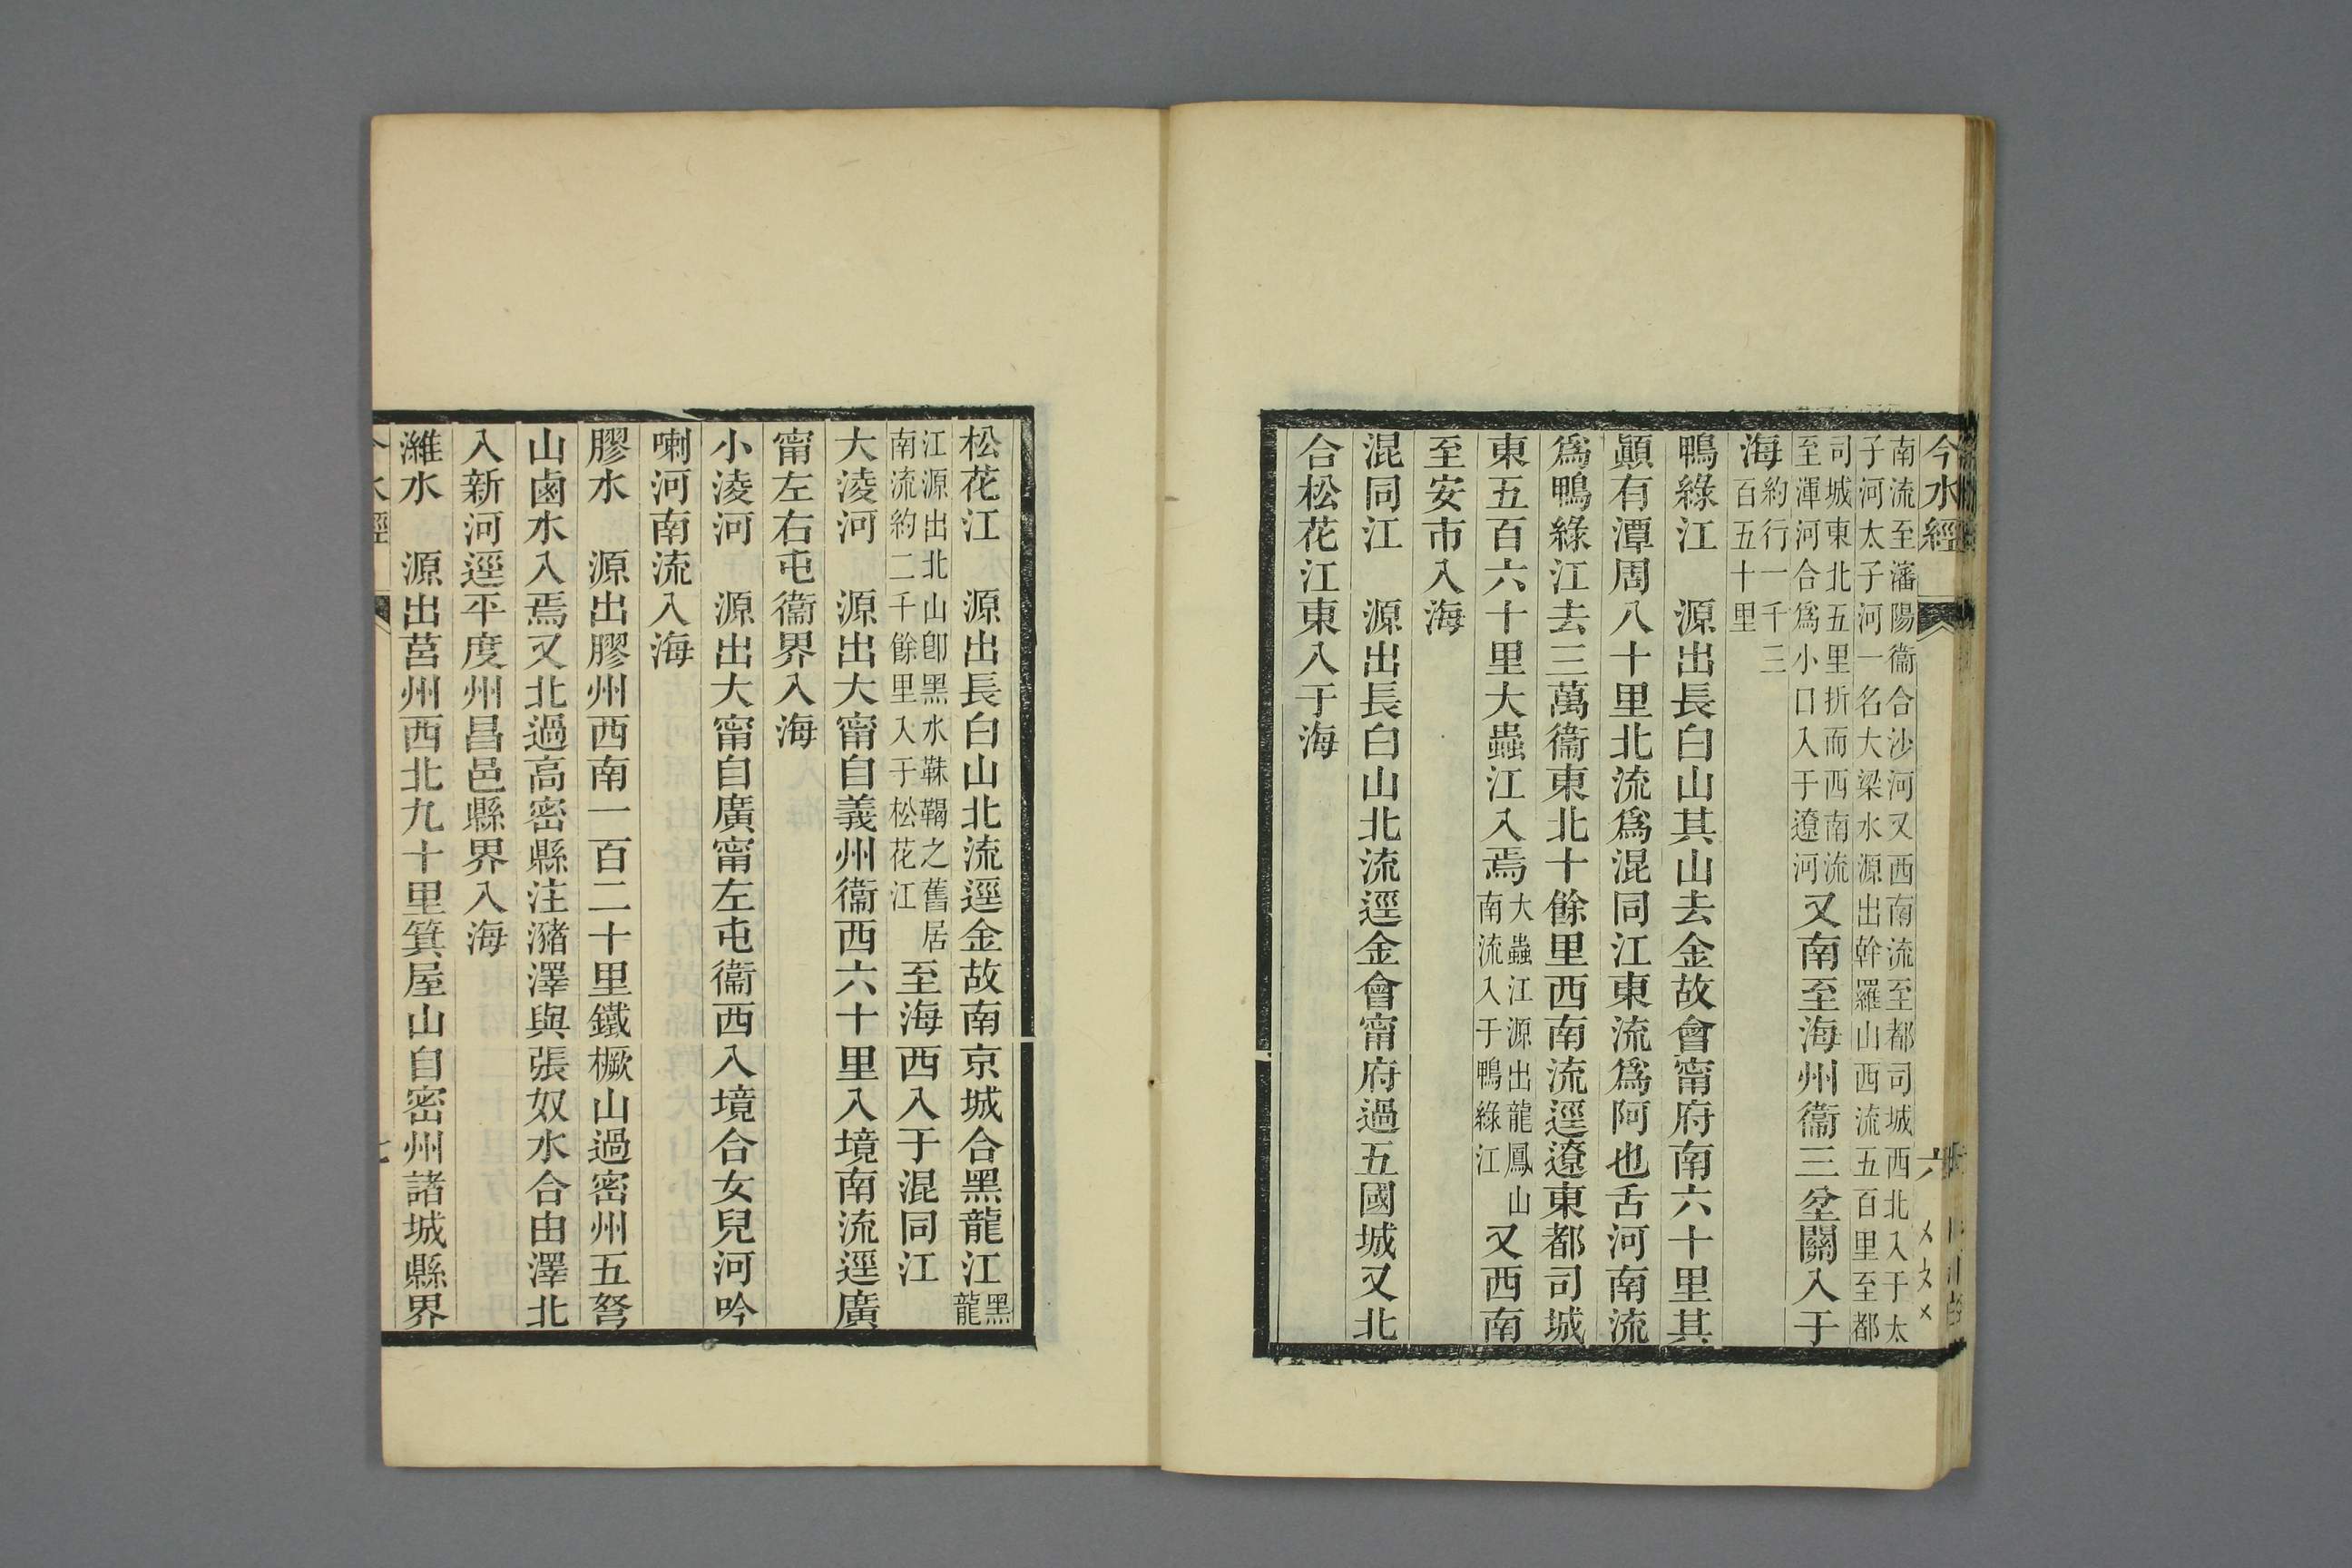 今水經
六
南流至瀋陽衞合沙河又西南流至都司城西北入于太
子河太子河一名大梁水源出幹羅山西流五百里至都
司城東北五里折而西南流
至渾河合爲小口入于遼河
又南至海州衞三坌關入于
海
約行一千三
百五十里
鴨綠江　源出長白山其山去金故會甯府南六十里其
顚有潭周八十里北流爲混同江東流爲阿也舌河南流
爲鴨綠江去三萬衞東北十餘里西南流逕遼東都司城
東五百六十里大蟲江入焉
大蟲江源出龍鳳山
南流入于鴨綠江
又西南
至安市入海
混同江　源出長白山北流逕金會甯府過五國城又北
合松花江東入于海
松花江　源出長白山北流逕金故南京城合黑龍江
黑
龍
江源出北山卽黑水靺鞨之舊居
南流約二千餘里入于松花江
至海西入于混同江
大淩河　源出大甯自義州衞西六十里入境南流逕廣
甯左右屯衞界入海
小淩河　源出大甯自廣甯左屯衞西入境合女兒河吟
喇河南流入海
膠水　源出膠州西南一百二十里鐵橛山過密州五弩
山鹵水入焉又北過高密縣注瀦澤與張奴水合由澤北
入新河逕平度州昌邑縣界入海
濰水　源出莒州西北九十里箕屋山自密州諸城縣界